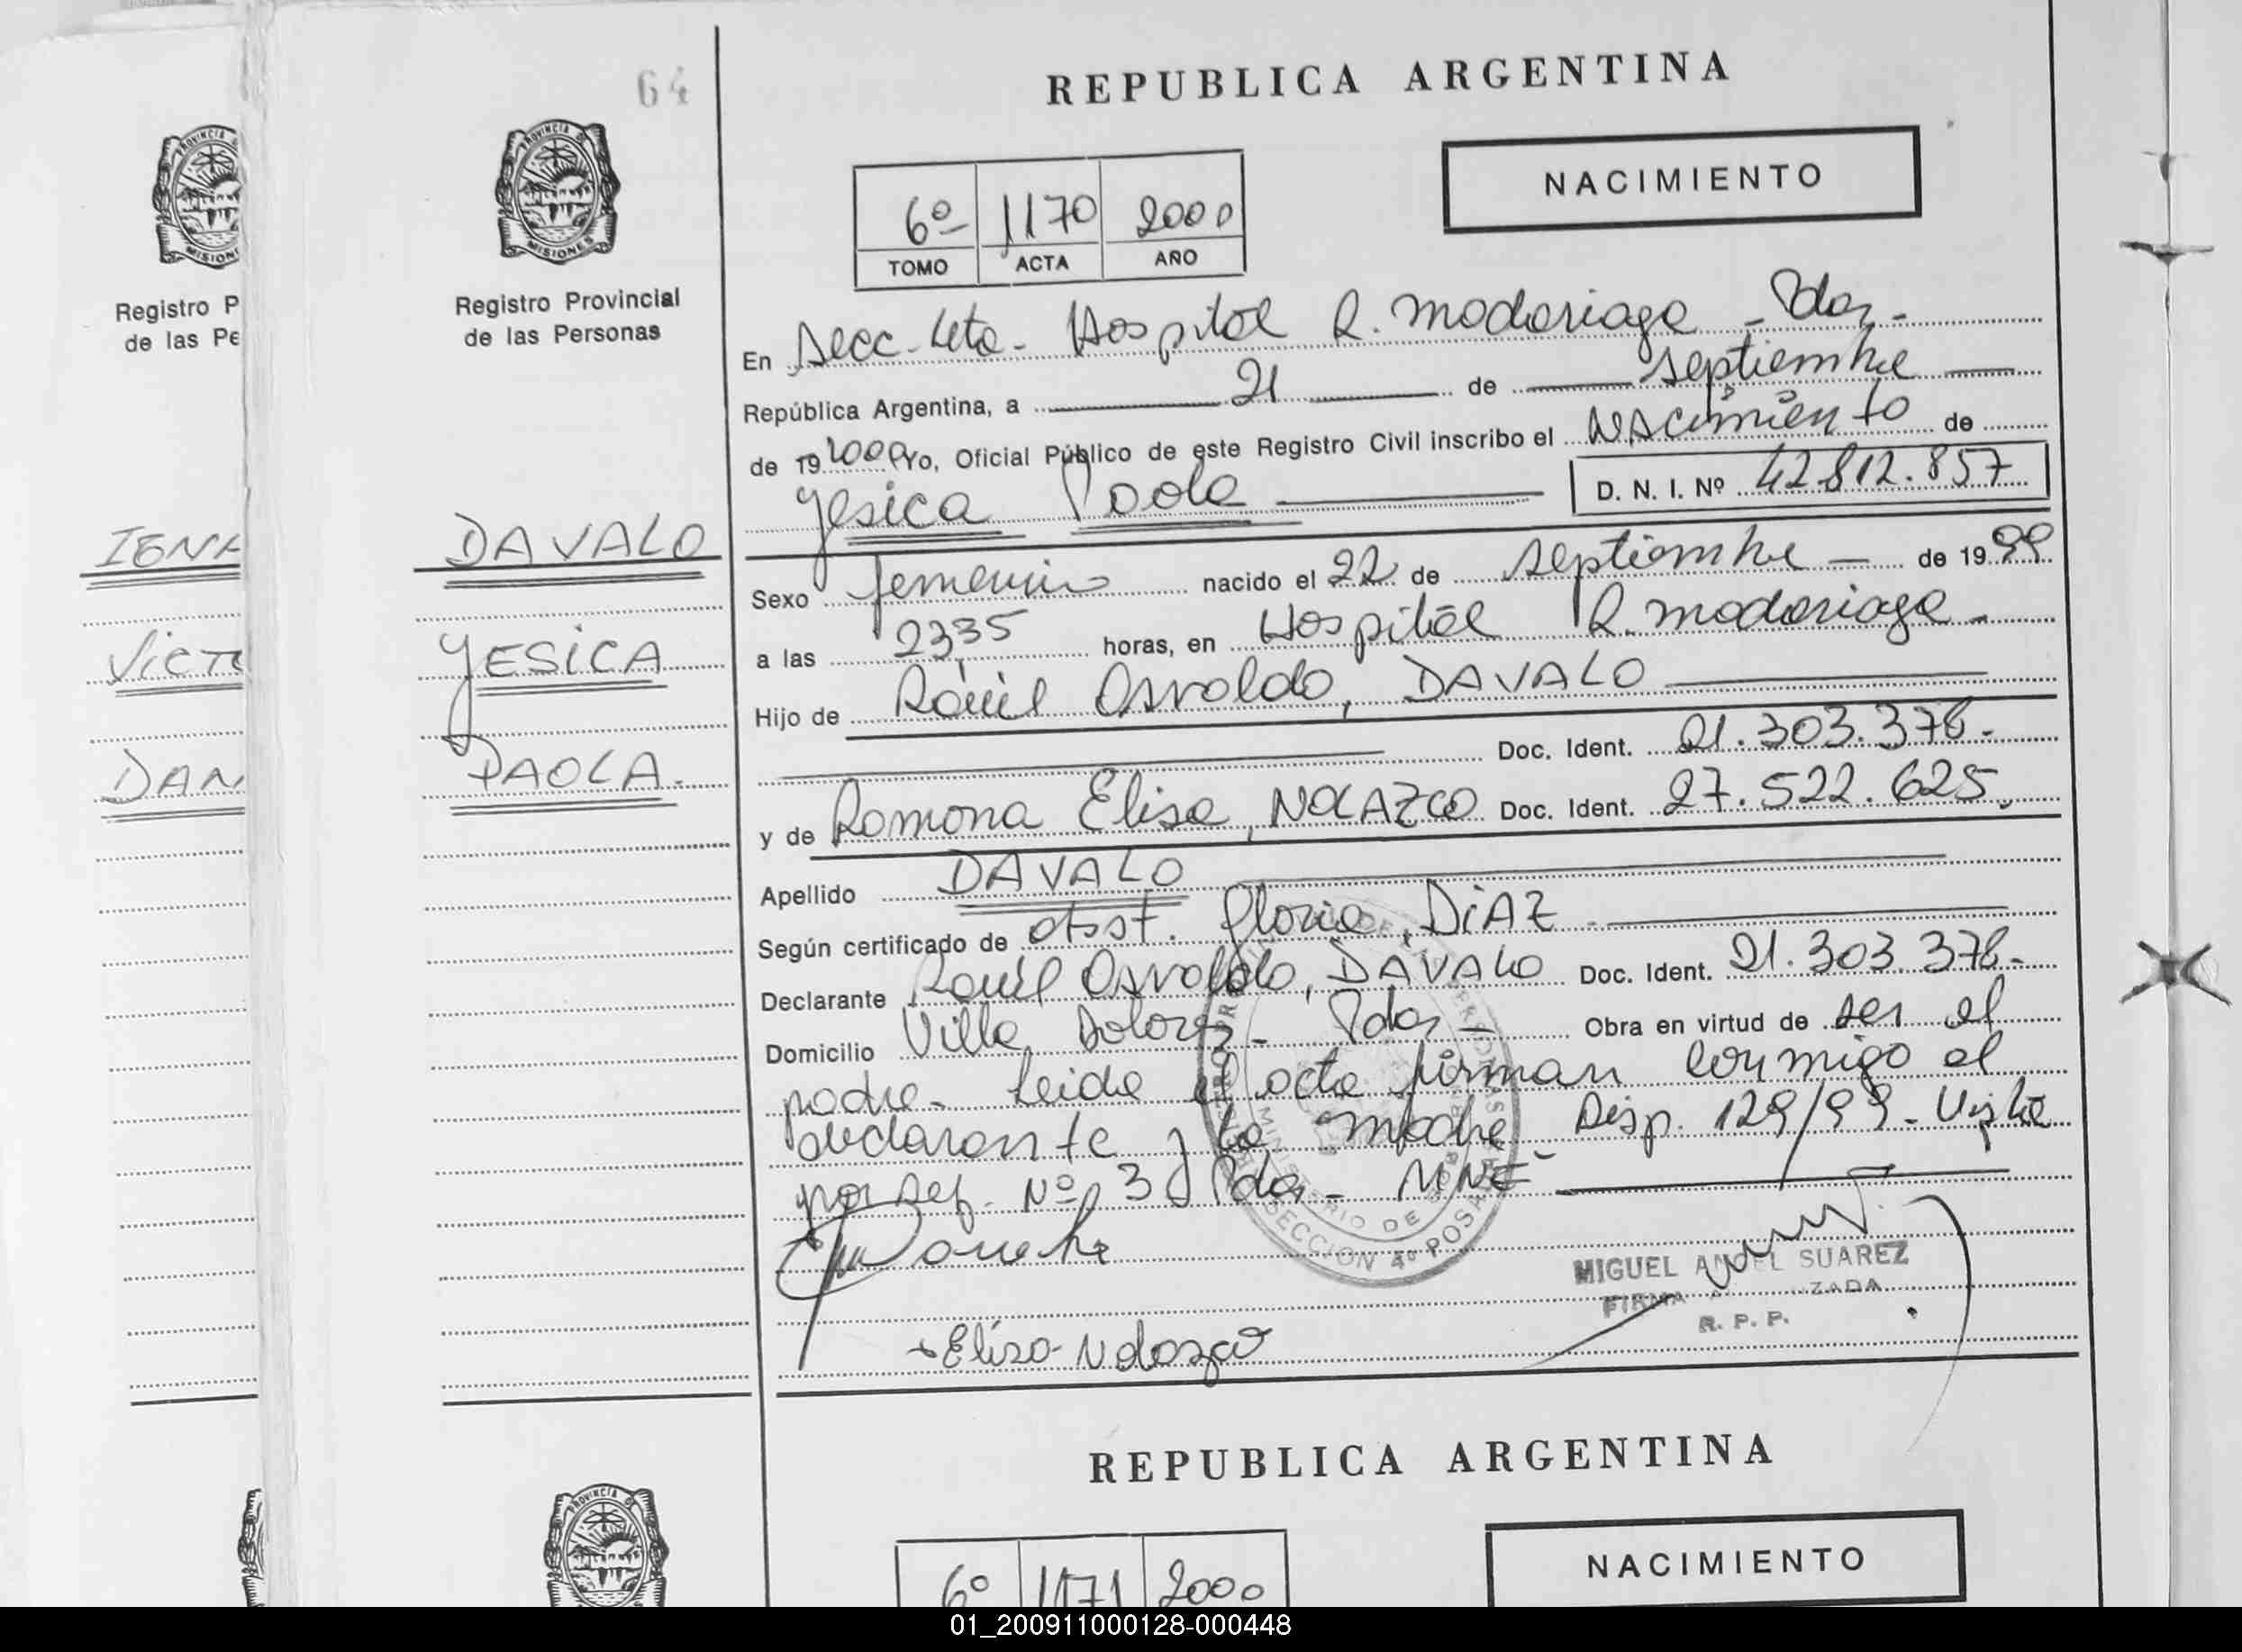 64
REPUBLICA ARGENTINA
NACIMIENTO
6º 1170 2000
TOMO ACTA AÑO
PROVINCIA DE
MISIONES
Registro P
de las Pe
Registro Provincial
de las Personas
En Secc. 4ta. Hospital R. Madariaga - Pdas -
República Argentina, a 21 de septiembre
de 19 2000 Yo, Oficial Público de este Registro Civil inscribo el Nacimiento de
Yesica Paola D. N. I. Nº 42.812.857
IGNA
DAVALO
Sexo femenino nacido el 22 de septiembre de 1999
VICTO
YESICA
a las 2335 horas, en Hospital R. Madariaga -
Hijo de Raúl Osvaldo, DAVALO
Doc. Ident. 21.303.378.-
DAN
PAOLA.
y de Ramona Elisa, NOLAZCO Doc. Ident. 27.522.625.
Apellido DAVALO
Según certificado de obst. Gloria, DIAZ
Declarante Raúl Osvaldo, DAVALO Doc. Ident. 21.303.378.-
Domicilio Villa Dolores - Pdas - Obra en virtud de ser el
padre. Leida el acta firman conmigo el
declarante y la madre Disp. 129/99 -
por Nº 3 Pdas -
MINISTERIO DE
SECCION 4º POSADAS
MIGUEL ANGEL SUAREZ
FIRMA AUTORIZADA
R. P. P.
Elisa Nolazco
REPUBLICA ARGENTINA
PROVINCIA DE
NACIMIENTO
6º 1171 2000
01_200911000128-000448